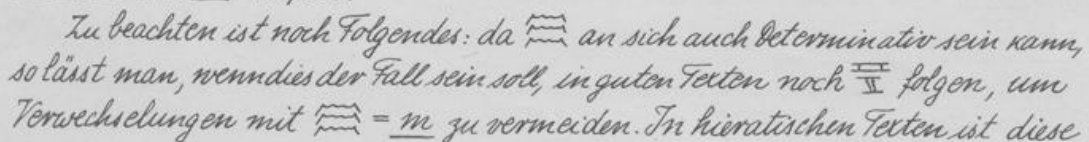 Zu beachten ist noch Folgendes: da 𓈗 an sich auch Determinativ sein kann,
so lässt man, wenn dies der Fall sein soll, in guten Texten noch 𓈘 folgen, um
Verwechselungen mit 𓈗 = m zu vermeiden. In hieratischen Texten ist diese